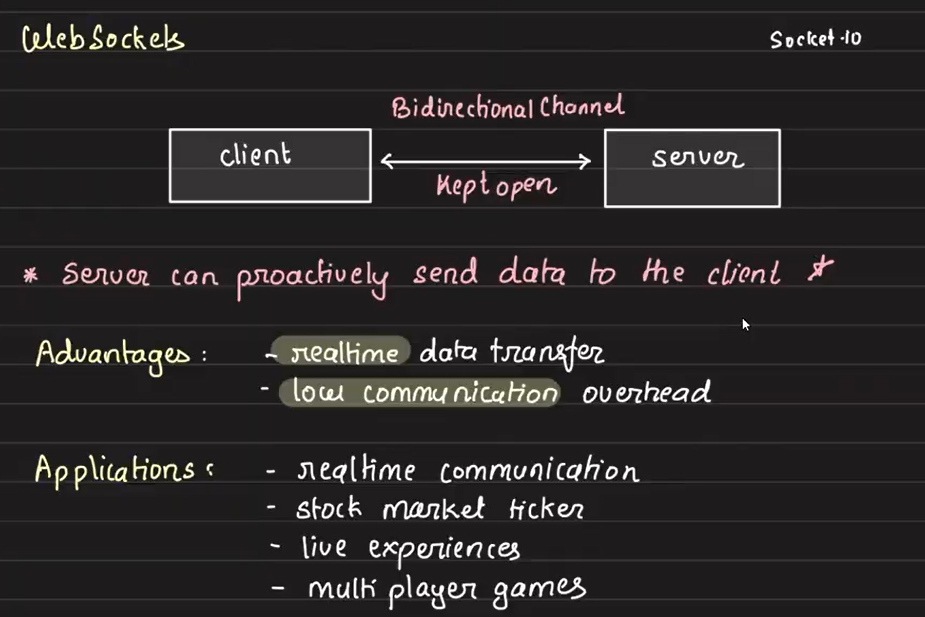 WebSockets
Socket.IO
Bidirectional Channel
client
server
Kept open
* Server can proactively send data to the client *
Advantages :
- realtime data transfer
- low communication overhead
Applications :
- realtime communication
- stock market ticker
- live experiences
- multi player games